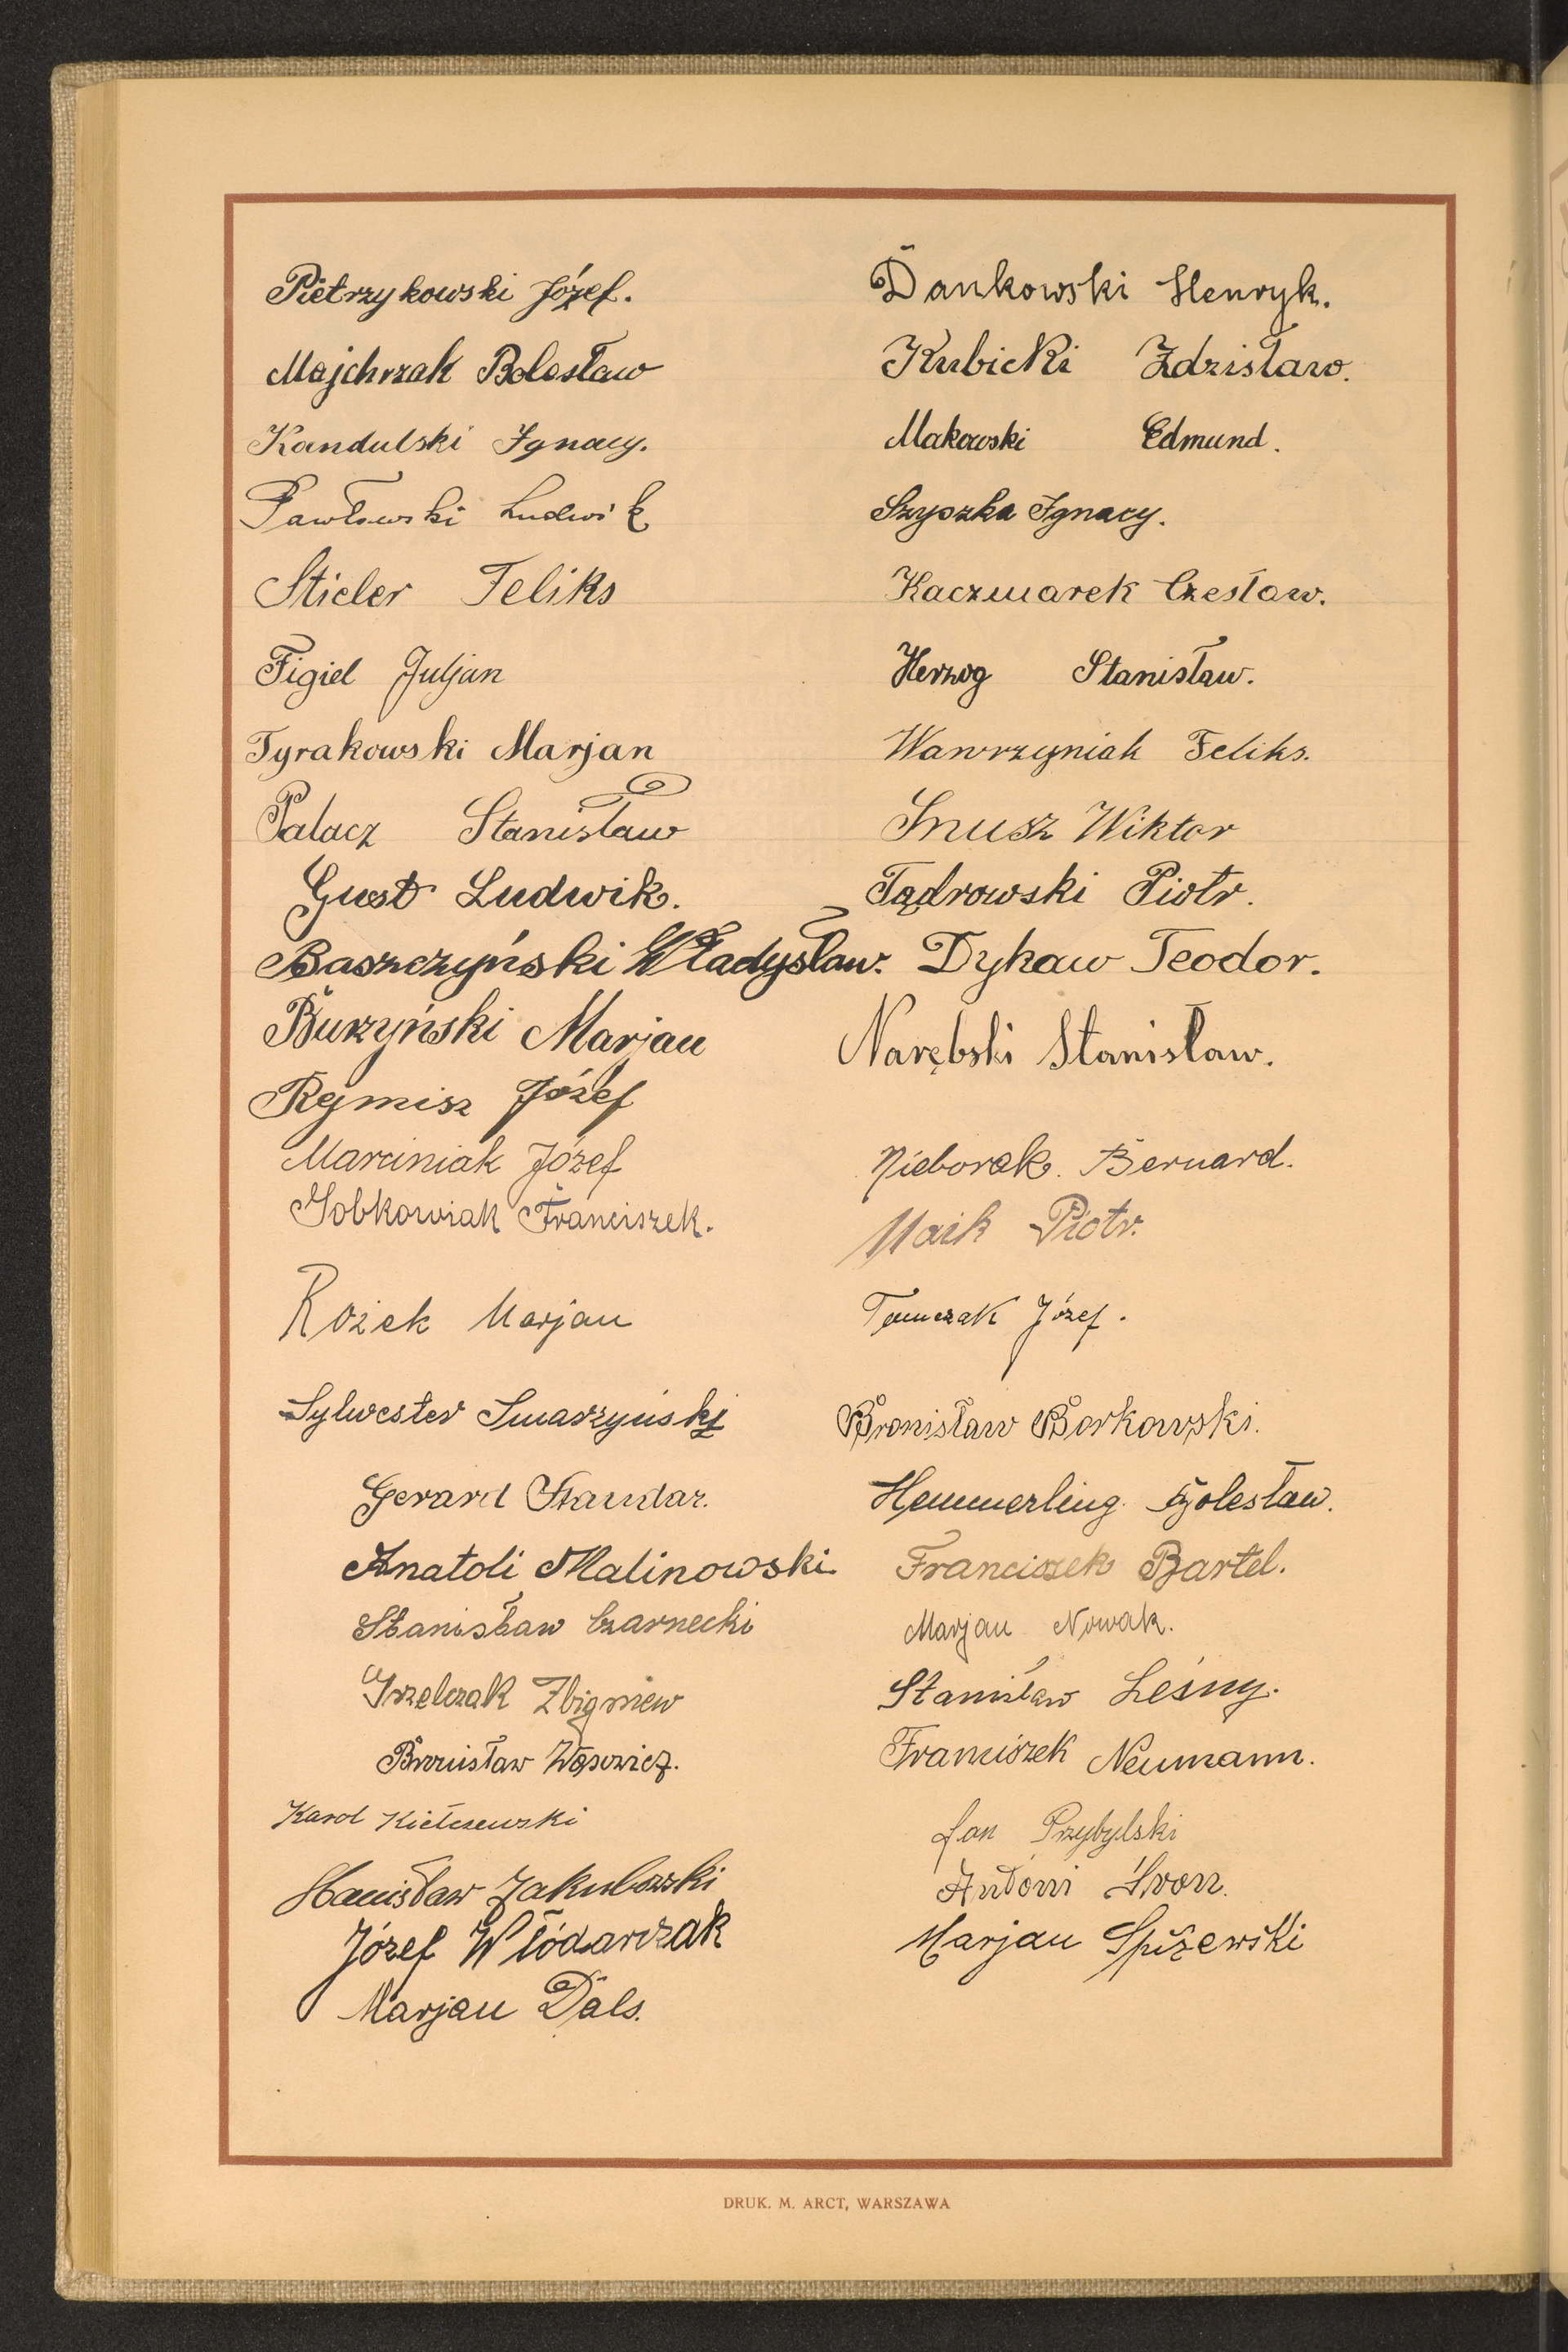 Pietrzykowski Józef.
Majchrzak Bolesław
Kandulski Ignacy.
Pawłowski Ludwik
Stieler Feliks
Figiel Juljan
Tyrakowski Marjan
Palacz Stanisław
Gust Ludwik.
Baszczyński Władysław.
Burzyński Marjan
Rymisz Józef
Marciniak Józef
Sobkowiak Franciszek.
Rożek Marjan
Sylwester Smarzyński
Gerard Standar.
Anatoli Malinowski
Stanisław Czarnecki
Grzelczak Zbigniew
Bronisław Wąsowicz.
Karol Kiełczewski
Stanisław Jakubowski
Józef Włodarczak
Marjan Dals.
Dankowski Henryk.
Kubicki Zdzisław.
Makowski Edmund.
Szyszka Ignacy.
Kaczmarek Czesław.
Herzog Stanisław.
Wawrzyniak Feliks.
Snusz Wiktor
Tądrowski Piotr.
Dykaw Teodor.
Narębski Stanisław.
Nieborak Bernard.
Maik Piotr.
Tomczak Józef.
Bronisław Borkowski.
Hemmerling Bolesław.
Franciszek Bartel.
Marjan Nowak.
Stanisław Leśny.
Franciszek Neumann.
Jan Przybylski
Antoni
Marjan Spiżewski
DRUK. M. ARCT, WARSZAWA